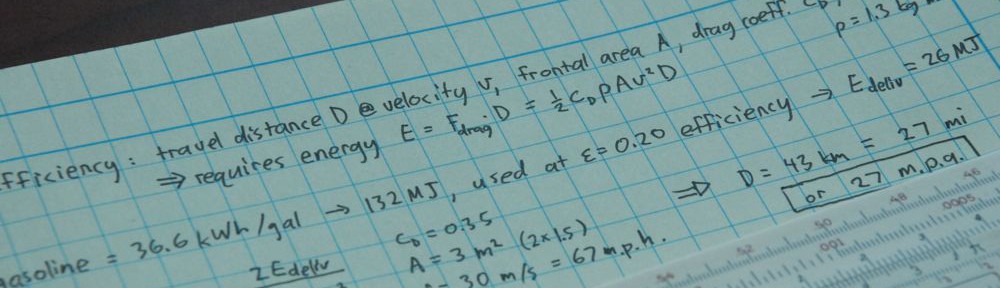 fficiency: travel distance D @ velocity v, frontal area A, drag coeff. C_D,
ρ = 1.3 kg
⇒ requires energy E = F_drag · D = ½ C_D ρ A v² D
gasoline = 36.6 kWh/gal → 132 MJ, used at ε = 0.20 efficiency → E_deliv = 26 MJ
2 E_deliv
C_D = 0.35
A = 3 m² (2x1.5)
30 m/s = 67 m.p.h.
⇒ D = 43 km = 27 mi
or 27 m.p.g.
54 52 50 48 46
001 0005